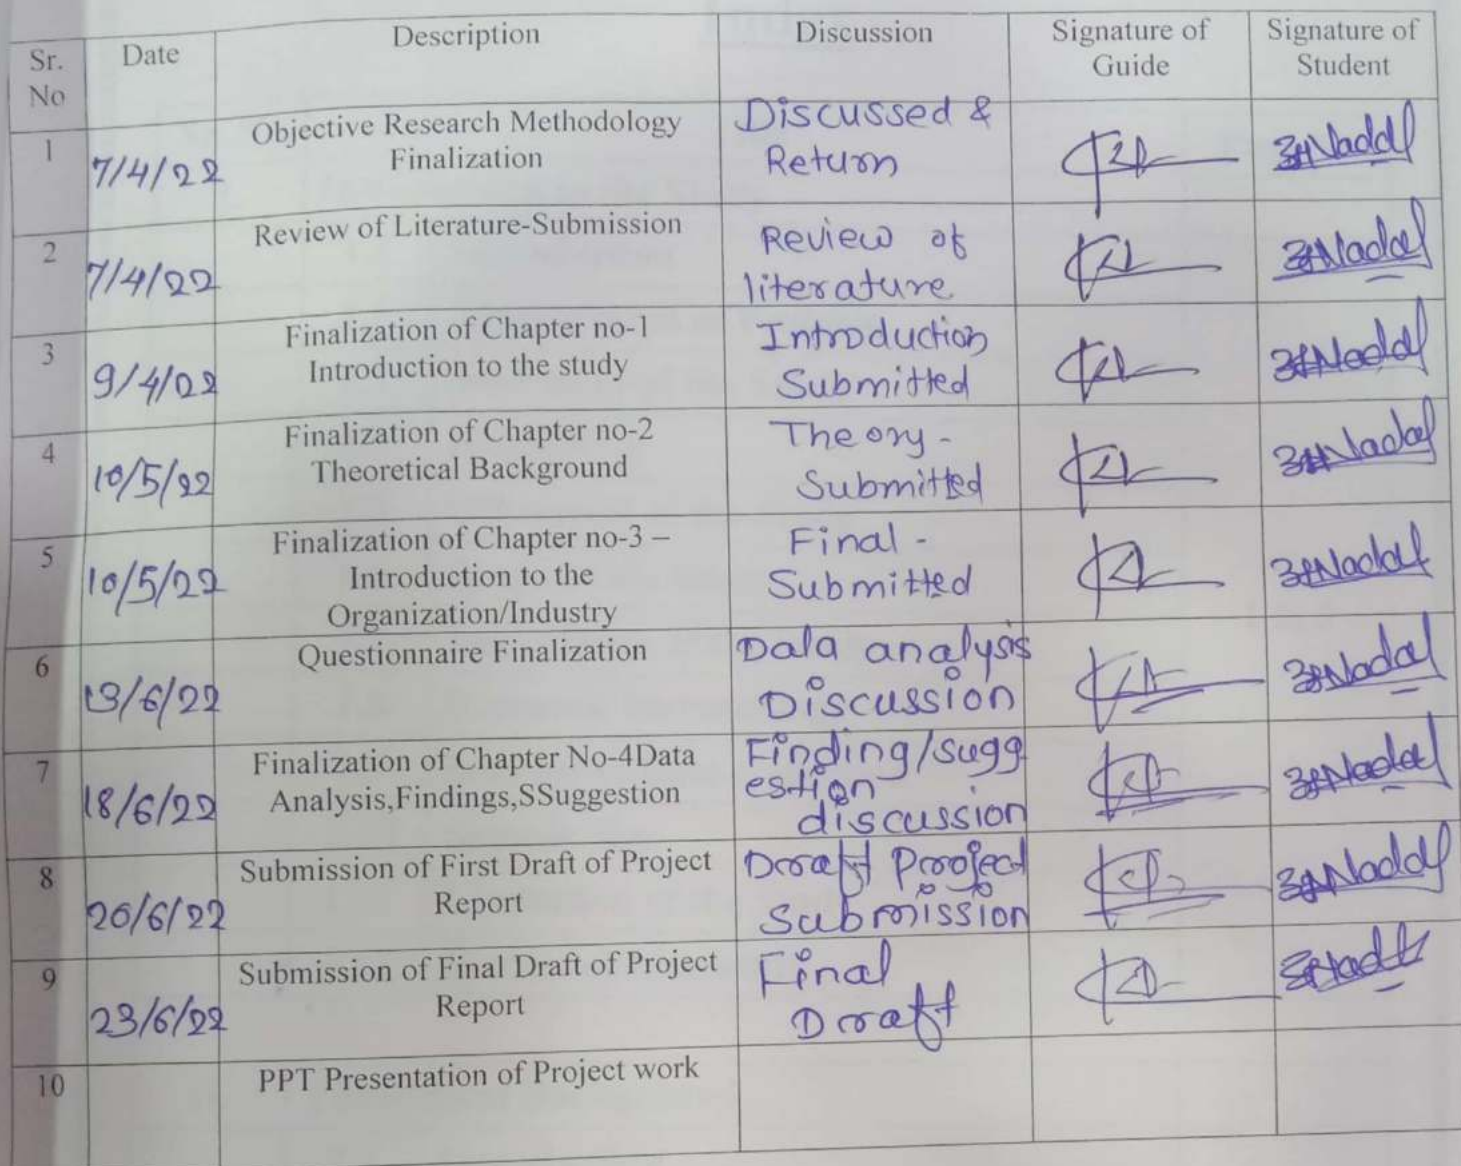 Sr. No
Date
Description
Discussion
Signature of Guide
Signature of Student
1
7/4/22
Objective Research Methodology
Finalization
Discussed &
Return
2
7/4/22
Review of Literature-Submission
Review of
literature
3
9/4/22
Finalization of Chapter no-1
Introduction to the study
Introduction
Submitted
4
10/5/22
Finalization of Chapter no-2
Theoretical Background
Theory -
Submitted
5
10/5/22
Finalization of Chapter no-3 –
Introduction to the
Organization/Industry
Final -
Submitted
6
13/6/22
Questionnaire Finalization
Data analysis
Discussion
7
18/6/22
Finalization of Chapter No-4Data
Analysis,Findings,SSuggestion
Finding/sugg
estion
discussion
8
20/6/22
Submission of First Draft of Project
Report
Draft Project
Submission
9
23/6/22
Submission of Final Draft of Project
Report
Final
Draft
10
PPT Presentation of Project work